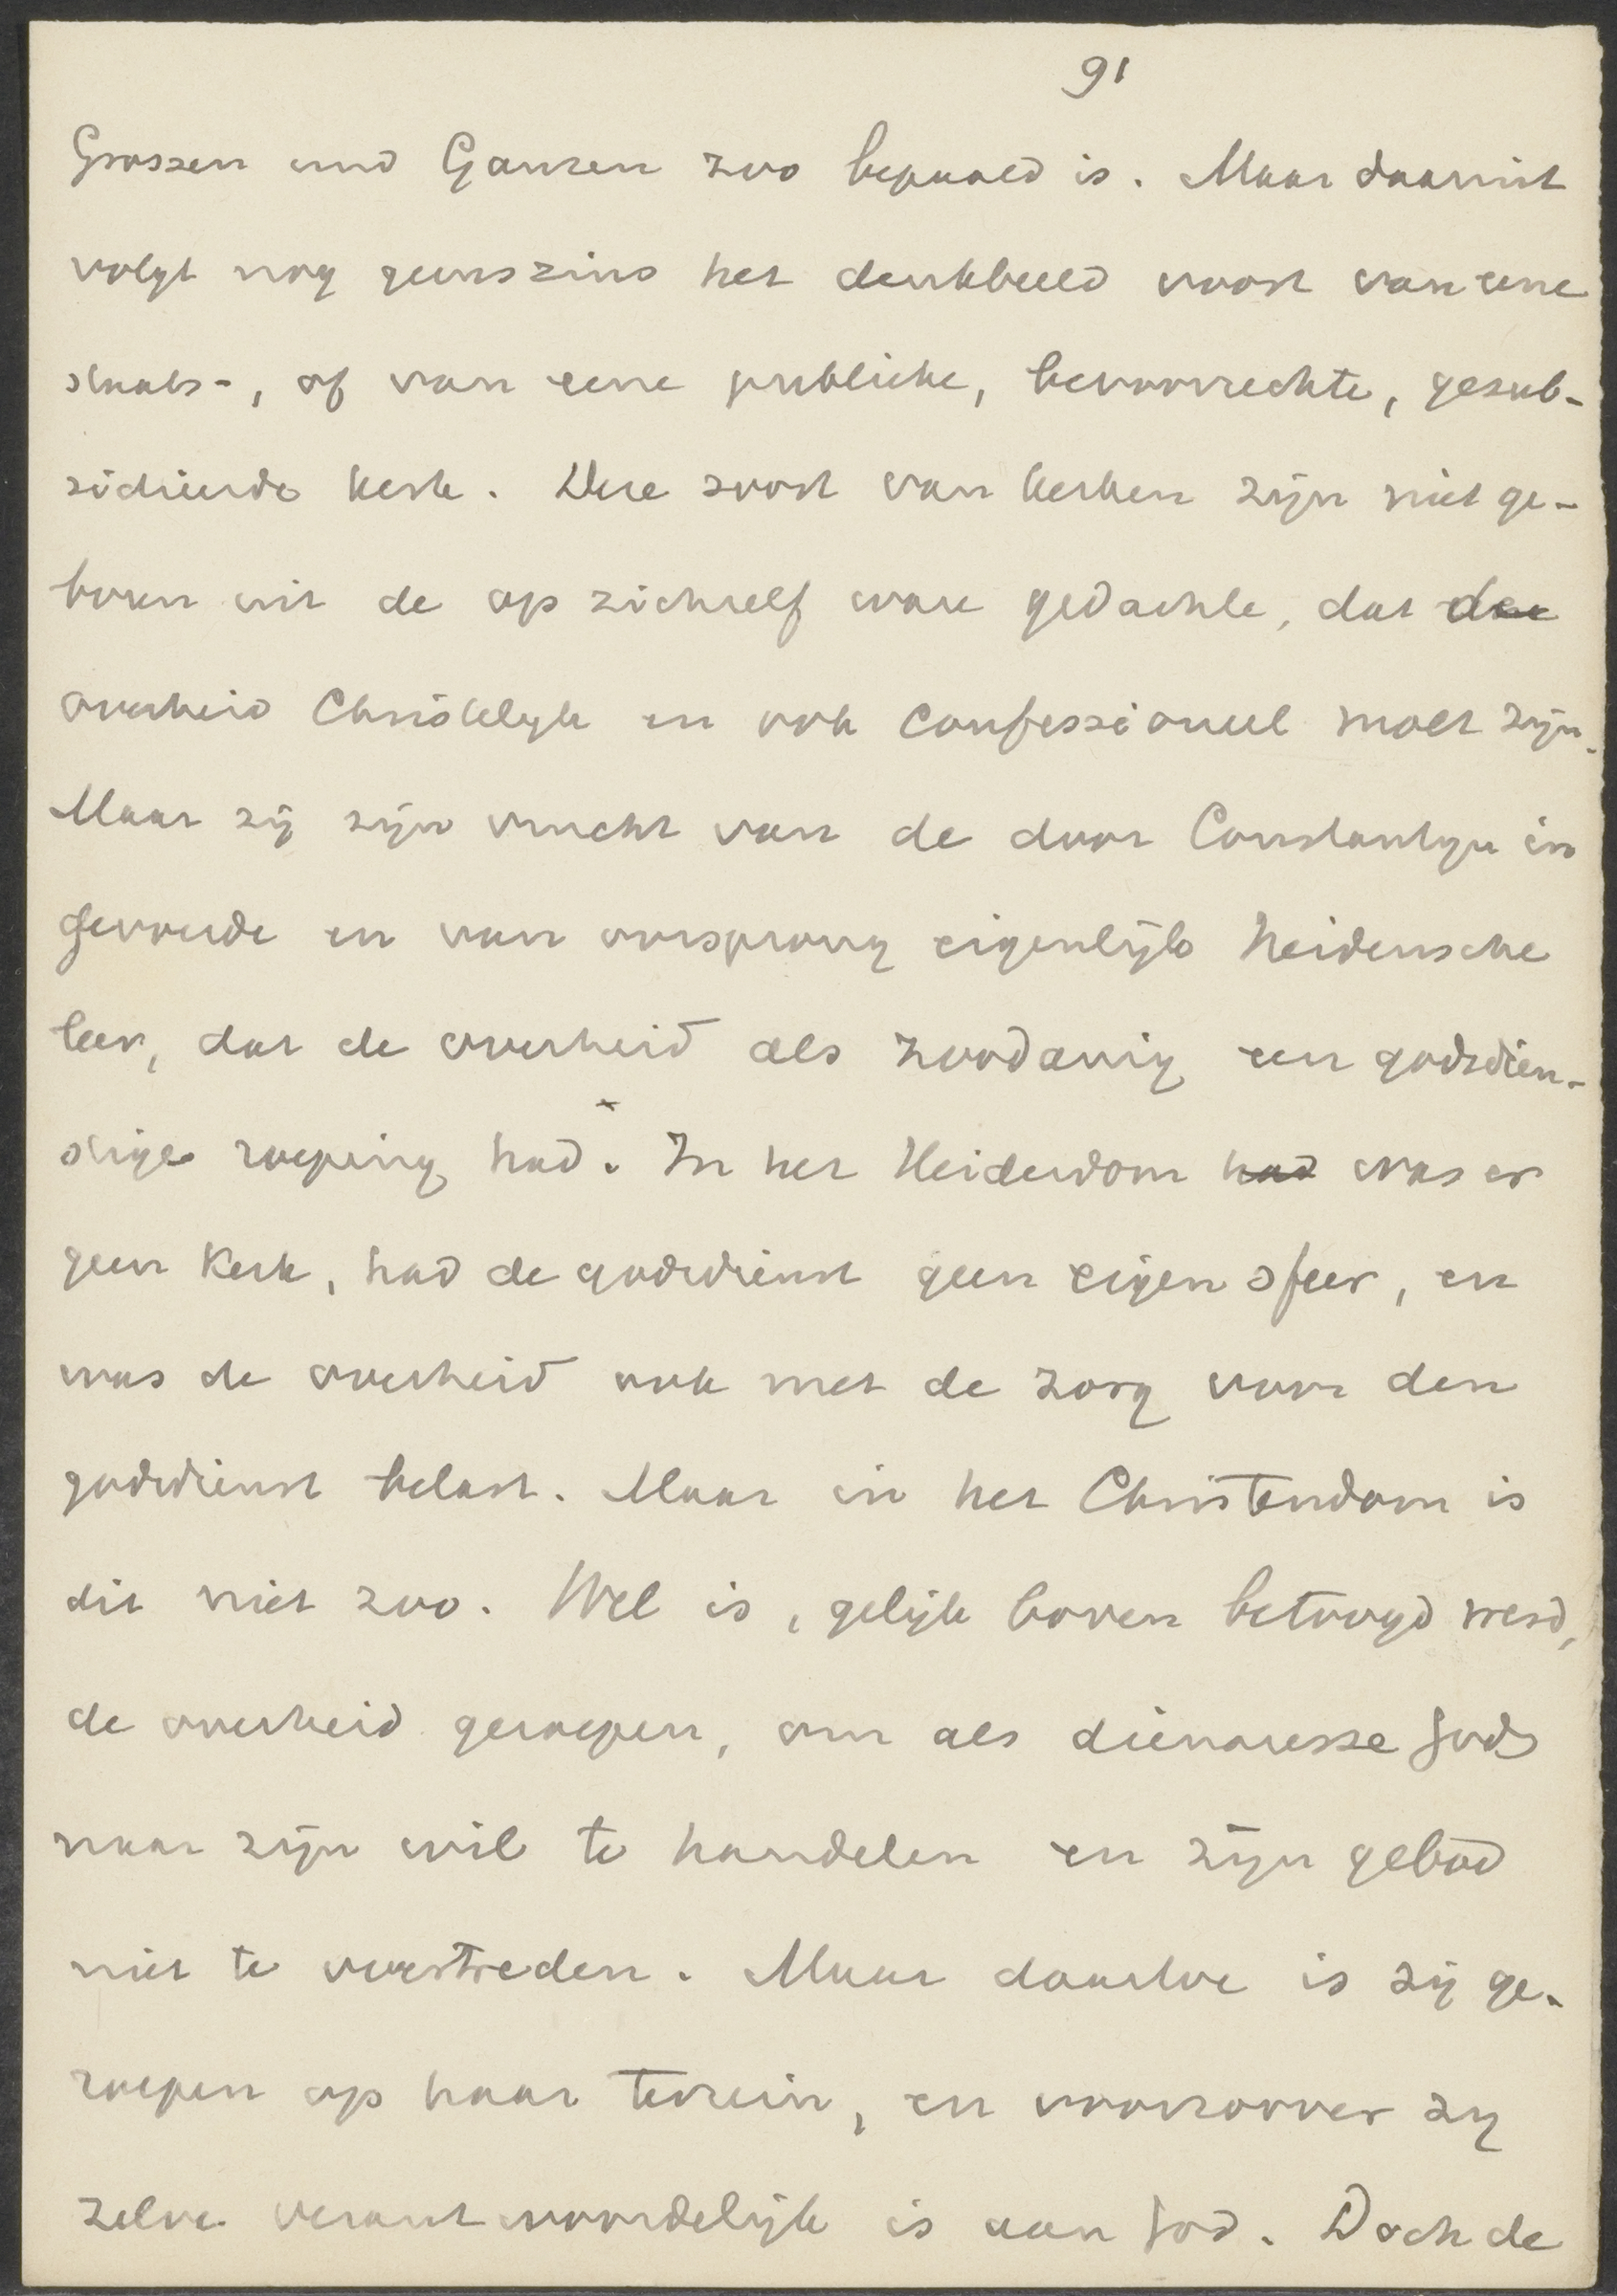 91
Grossen und Ganzen zoo bepaald is. Maar daaruit
volgt nog geenszins het denkbeeld voort van eene
staats-, of van eene publieke, bevoorrechte, gesub-
sidieerde kerk. Deze soort van kerken zijn niet ge-
boren uit de op zichzelf ware gedachte, dat de
overheid Christelijk en ook confessioneel moet zijn.
Maar zij zijn vrucht van de door Constantijn in
gevoerde en van oorsprong eigenlijk heidensche
leer, dat de overheid als zoodanig een godsdien-
stige roeping had. In het Heidendom had was er
geen Kerk, had de godsdienst geen eigen sfeer, en
was de overheid ook met de zorg voor den
godsdienst belast. Maar in het Christendom is
dit niet zoo. Wel is, gelijk boven betoogd werd,
de overheid geroepen, om als dienaresse Gods
naar zijn wil te handelen en zijn gebod
niet te overtreden. Maar daartoe is zij ge-
roepen op haar terrein, en voorzoover zij
zelve verantwoordelijk is aan God. Doch de